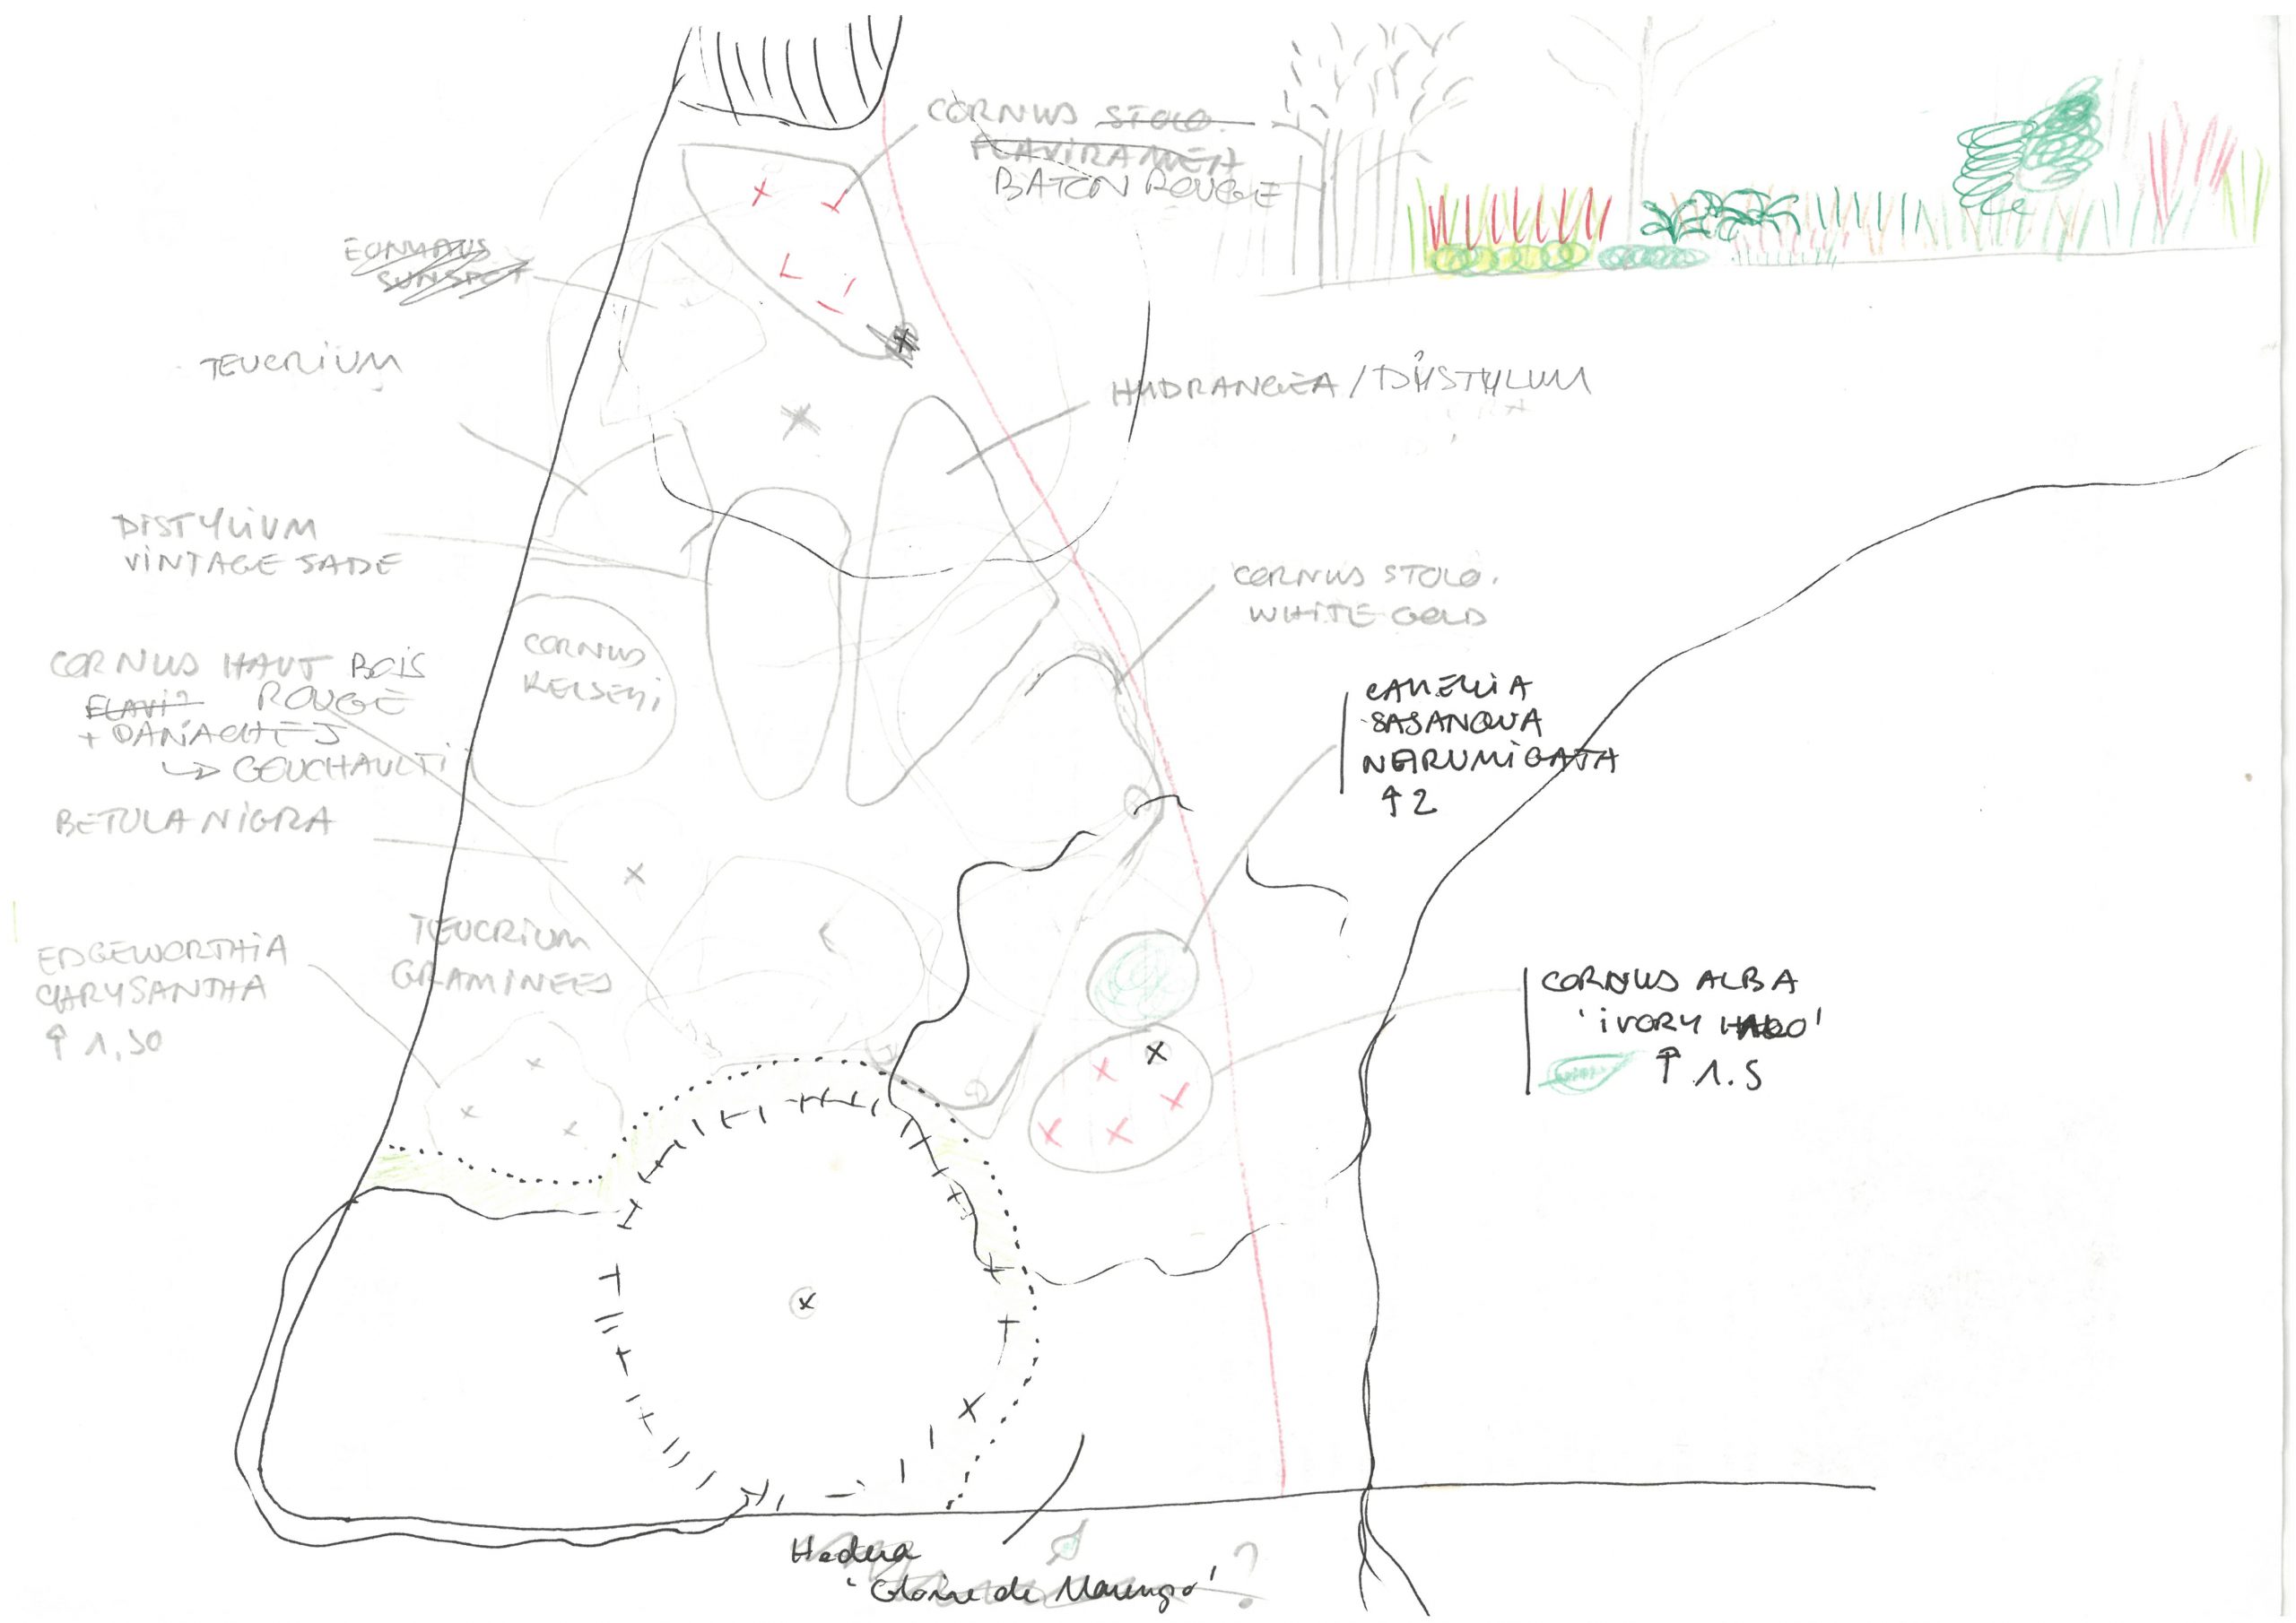 CORNUS STOLO.
FLAVIRAMEA
BATON ROUGE
EONYMUS
SUNSPOT
TEUCRIUM
HUDRANGEA / DYSTYLUM
DISTYLIUM
VINTAGE JADE
CORNUS STOLO.
WHITE GOLD
CORNUS
KELSEYI
CORNUS HAUT BOIS
FLAVI? ROUGE
+ PANACHÉS
↳ GOUCHAULTI
CAMELLIA
SASANQUA
NARUMIGATA
↑ 2
BETULA NIGRA
TEUCRIUM
GRAMINEES
EDGEWORTHIA
CHRYSANTHA
↑ 1,50
CORNUS ALBA
'IVORY HALO'
↑ 1.5
Hedera
'Gloire de Marengo' ?